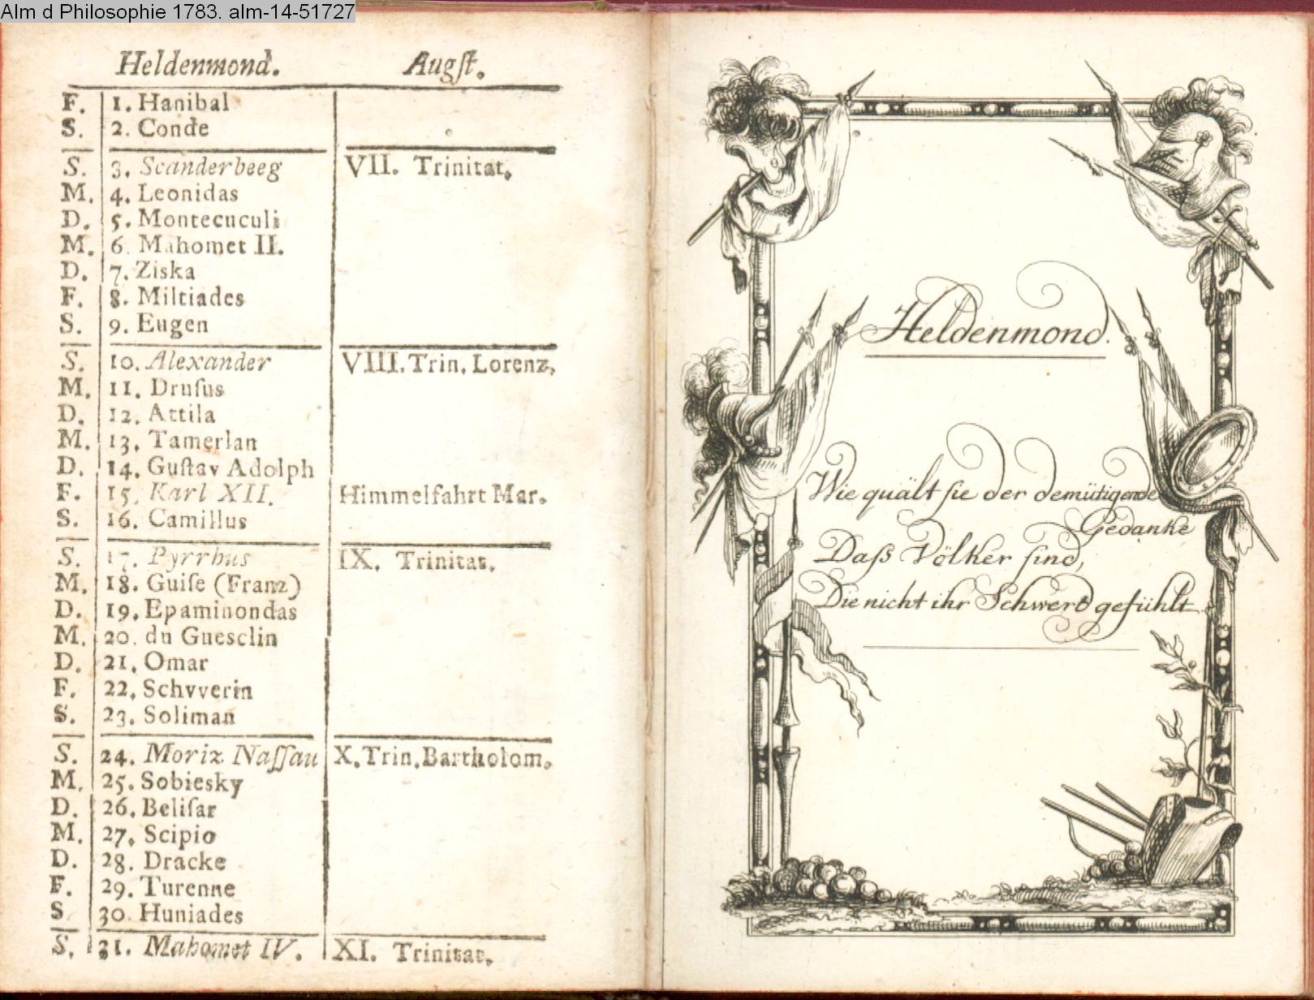 Alm d Philosophie 1783. alm-14-51727
Heldenmond. Augſt.
F. 1. Hanibal
S. 2. Conde
S. 3. Scanderbeeg VII. Trinitat.
M. 4. Leonidas
D. 5. Montecuculi
M. 6. Mahomet II.
D. 7. Ziska
F. 8. Miltiades
S. 9. Eugen
S. 10. Alexander VIII. Trin. Lorenz.
M. 11. Druſus
D. 12. Attila
M. 13. Tamerlan
D. 14. Guſtav Adolph
F. 15. Karl XII. Himmelfahrt Mar.
S. 16. Camillus
S. 17. Pyrrhus IX. Trinitat.
M. 18. Guiſe (Franz)
D. 19. Epaminondas
M. 20. du Gueſclin
D. 21. Omar
F. 22. Schvverin
S. 23. Soliman
S. 24. Moriz Naſſau X. Trin. Bartholom.
M. 25. Sobiesky
D. 26. Beliſar
M. 27. Scipio
D. 28. Dracke
F. 29. Turenne
S 30. Huniades
S. 31. Mahomet IV. XI. Trinitat.
Heldenmond.
Wie quält ſie der demütigende
Gedanke
Daß Völker ſind,
Die nicht ihr Schwerd gefühlt